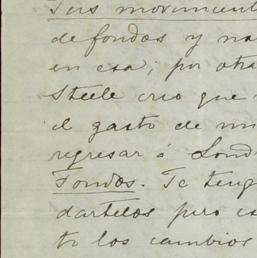 Tus movimient
de fondos y na
en esa; por otra
Steele creo que
el gasto de un
regresar á Lond
Fondos. Te teng
dartelos pero es
to los cambios